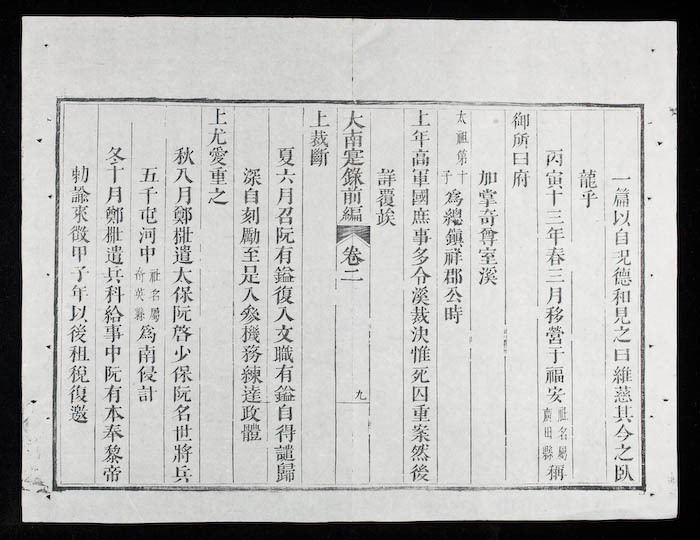 一篇以自況德和見之曰維慈其今之臥
龍乎
丙寅十三年春三月移營于福安社名屬廣田縣稱
御所曰府
加掌奇尊室溪
太祖第十子為總鎮祥郡公時
上年高軍國庶事多令溪裁決惟死囚重案然後
詳覆竢
大南寔錄前編 卷二 九
上裁斷
夏六月召阮有鎰復入文職有鎰自得譴歸
深自刻勵至是入參機務練達政體
上尤愛重之
秋八月鄭㯮遣太保阮啓少保阮名世將兵
五千屯河中社名屬奇英縣為南侵計
冬十月鄭㯮遣兵科給事中阮有本奉黎帝
勅諭來徵甲子年以後租稅復邀